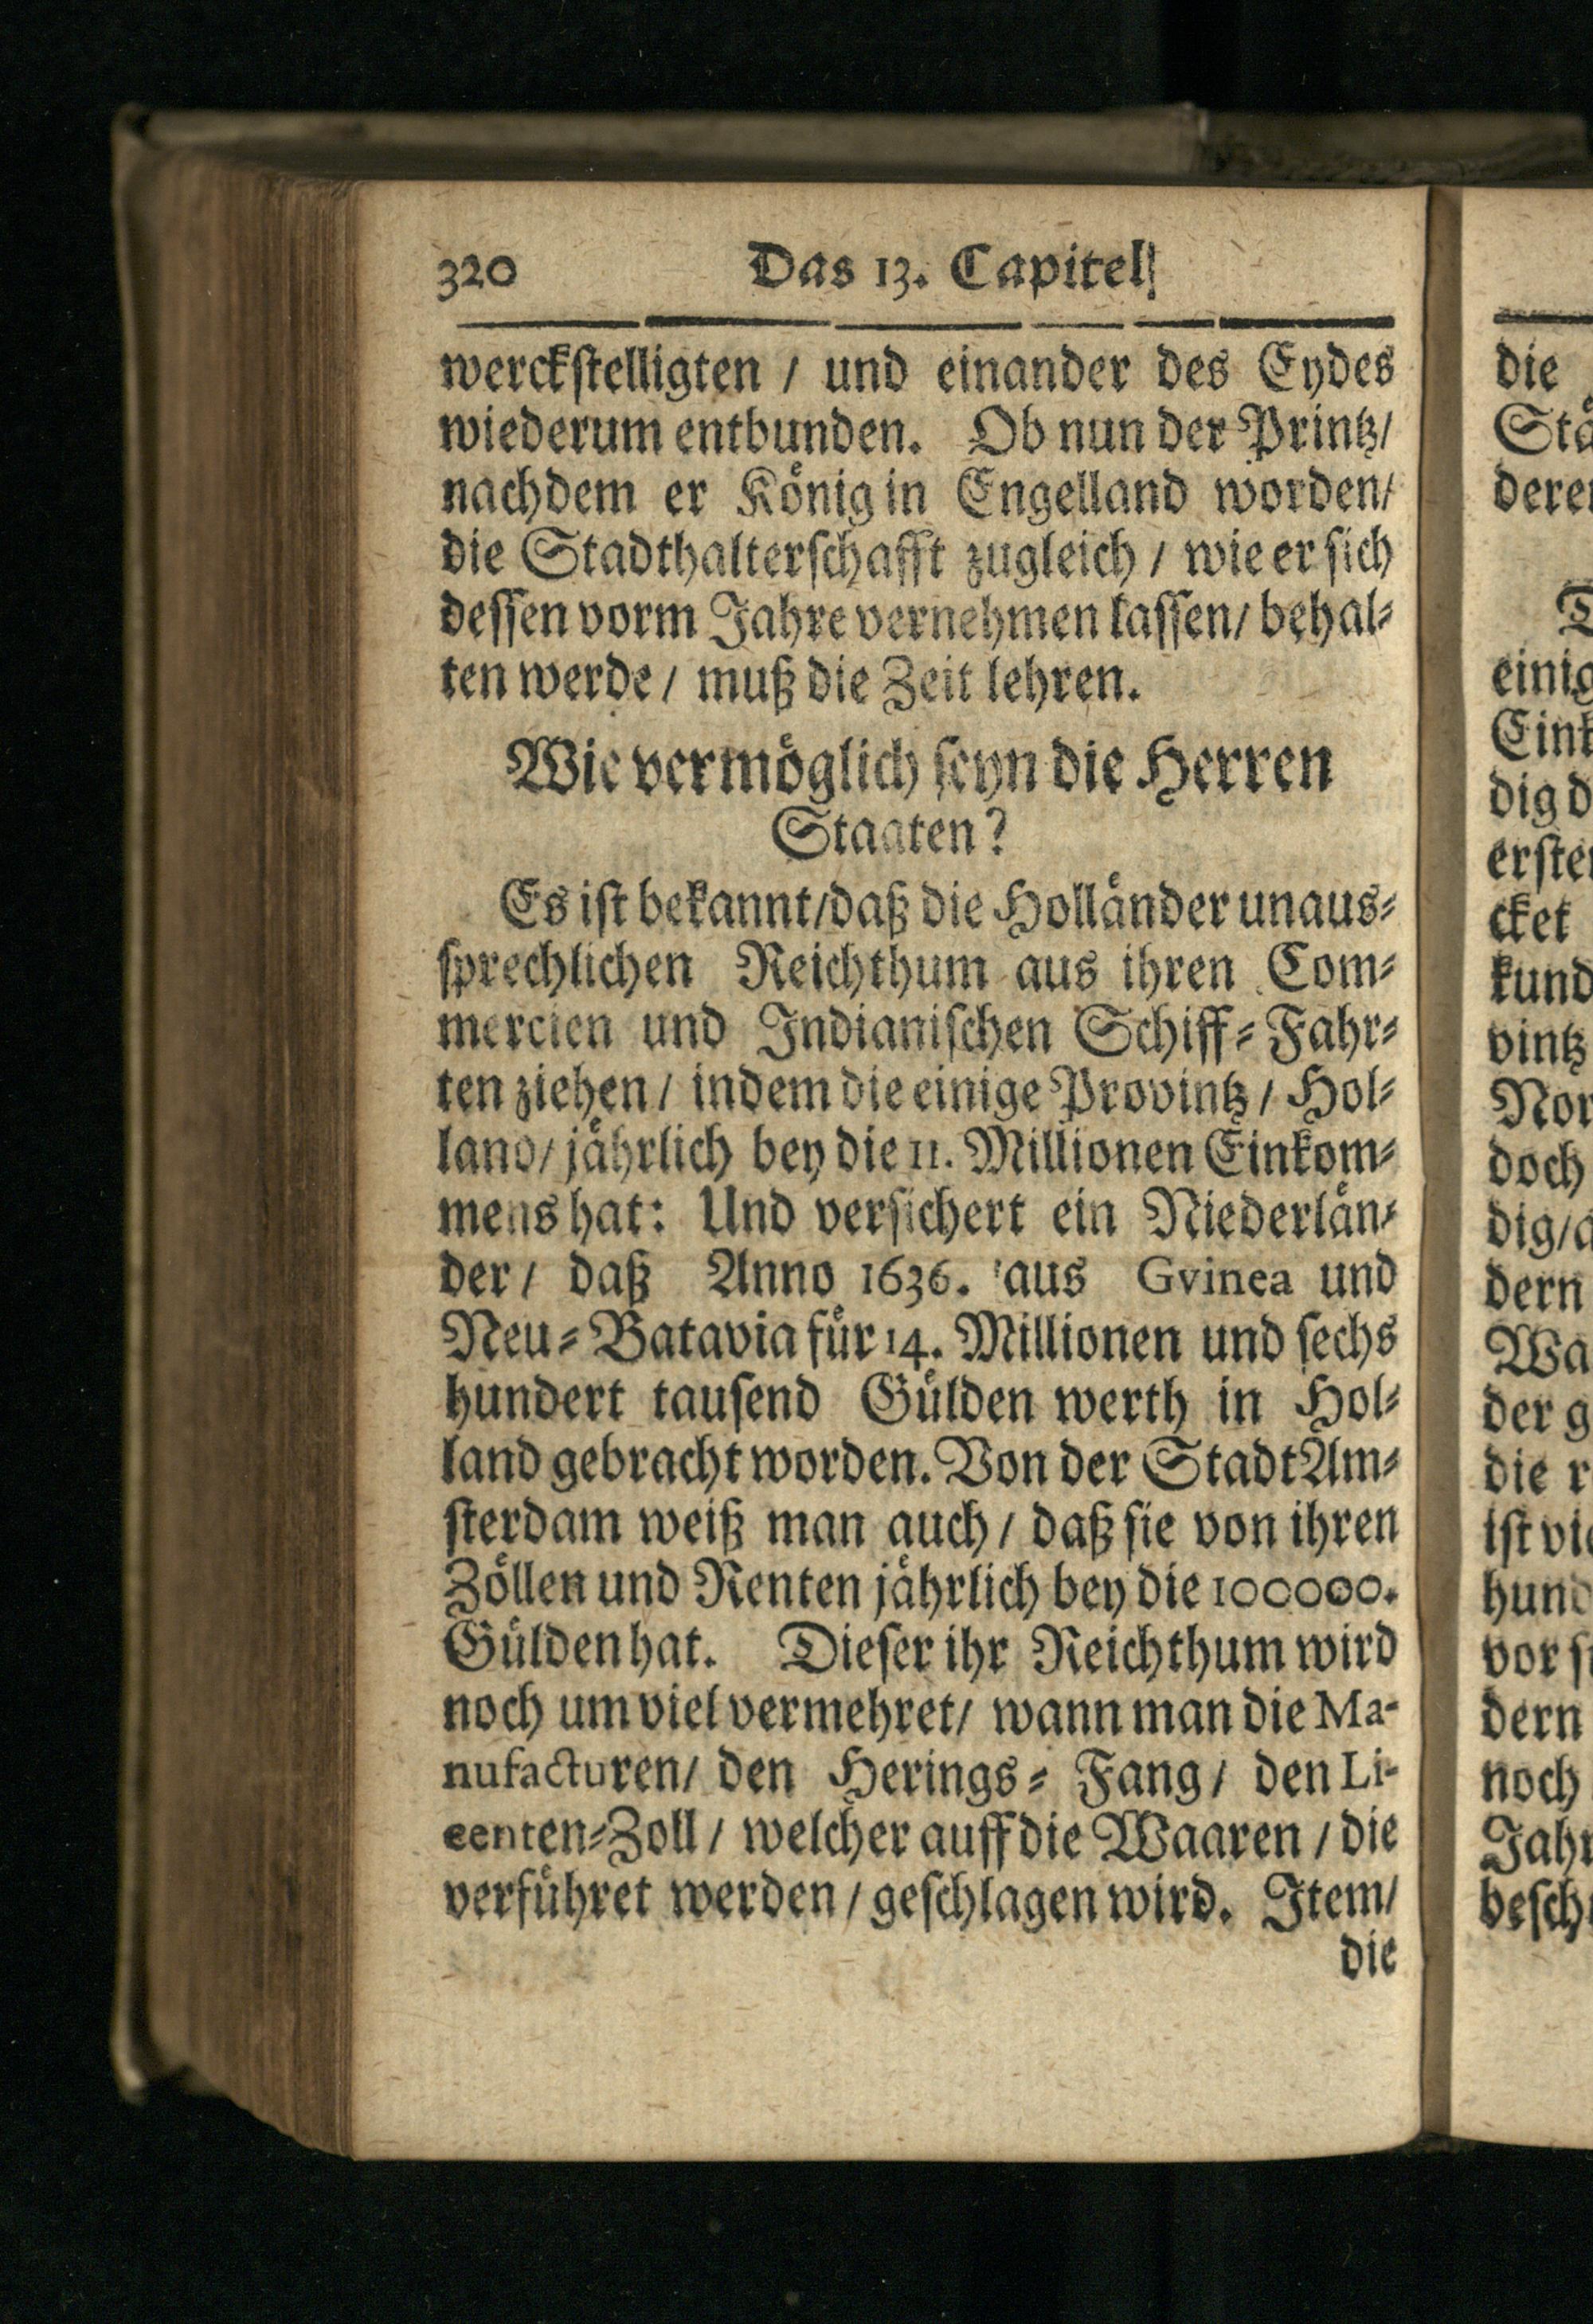 320 Das 13. Capitel
werckſtelligten / und einander des Eydes
wiederum entbunden. Ob nun der Printz/
nachdem er König in Engelland worden/
die Stadthalterſchafft zugleich / wie er ſich
deſſen vorm Jahre vernehmen laſſen/ behal⸗
ten werde / muß die Zeit lehren.
Wie vermöglich ſeyn die Herren
Staaten?
Es iſt bekannt/daß die Holländer unaus⸗
ſprechlichen Reichthum aus ihren Com⸗
mercien und Indianiſchen Schiff⸗Fahr⸗
ten ziehen / indem die einige Provintz / Hol⸗
land/ jährlich bey die 11. Millionen Einkom⸗
mens hat: Und verſichert ein Niederlän⸗
der / daß Anno 1636. aus Gvinea und
Neu⸗Batavia für 14. Millionen und ſechs
hundert tauſend Gülden werth in Hol⸗
land gebracht worden. Von der Stadt Am⸗
ſterdam weiß man auch / daß ſie von ihren
Zöllen und Renten jährlich bey die 100000.
Gülden hat. Dieſer ihr Reichthum wird
noch um viel vermehret/ wann man die Ma-
nufacturen/ den Herings⸗Fang / den Li-
centen⸗Zoll / welcher auff die Waaren / die
verführet werden / geſchlagen wird. Item/
die
die
Stä
dere
einig
Eink
dig d
erſte
cket
kund
vintz
Nor
doch
dig/d
dern
Wa
der g
die r
iſt vie
hund
vor ſ
dern
noch
Jahr
beſch